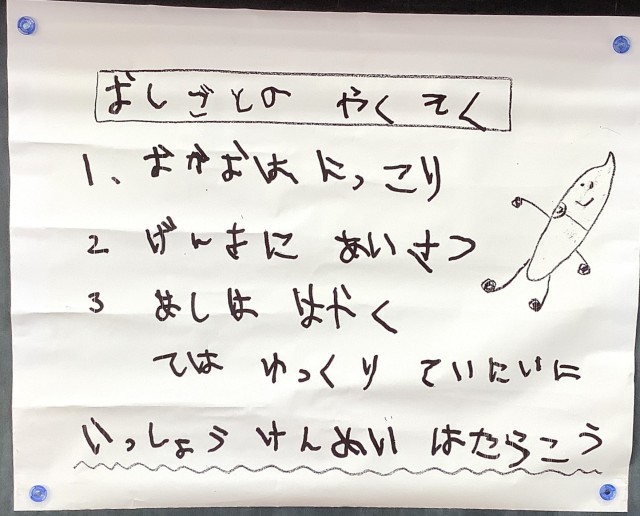 おしごとの やくそく
1、おかおは にっこり
2 げんきに あいさつ
3 あしは はやく
ては ゆっくり ていねいに
いっしょう けんめい はたらこう